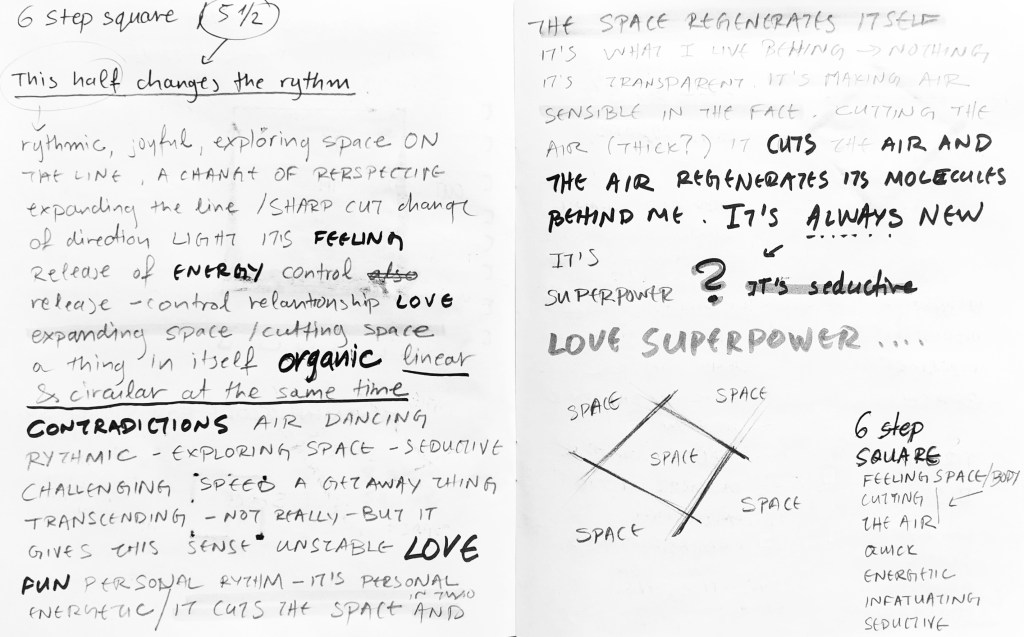 6 step square 5 1/2
This half changes the rythm
rythmic, joyful, exploring space ON
THE LINE, A CHANGE OF PERSPECTIVE
expanding the line / SHARP CUT change
of direction LIGHT ITIS FEELING
Release of ENERGY control also
release - control relantionship LOVE
expanding space / cutting space
a thing in itself organic linear
& circular at the same time
CONTRADICTIONS AIR DANCING
RYTHMIC - EXPLORING SPACE - SEDUCTIVE
CHALLENGING SPEED A GETAWAY THING
TRANSCENDING - NOT REALLY - BUT IT
GIVES THIS SENSE UNSTABLE LOVE
FUN PERSONAL RYTHM - IT'S PERSONAL
IN TWO
ENERGETIC / IT CUTS THE SPACE AND
THE SPACE REGENERATES ITSELF
IT'S WHAT I LIVE BEHING → NOTHING
IT'S TRANSPARENT. IT'S MAKING AIR
SENSIBLE IN THE FACE. CUTTING THE
AIR (THICK?) IT CUTS THE AIR AND
THE AIR REGENERATES ITS MOLECULES
BEHIND ME. IT'S ALWAYS NEW
IT'S
SUPERPOWER ? IT'S seductive
LOVE SUPERPOWER ....
SPACE
SPACE
SPACE
SPACE
SPACE
6 step
SQUARE
FEELING SPACE/BODY
CUTTING
THE AIR
QUICK
ENERGETIC
INFATUATING
SEDUCTIVE